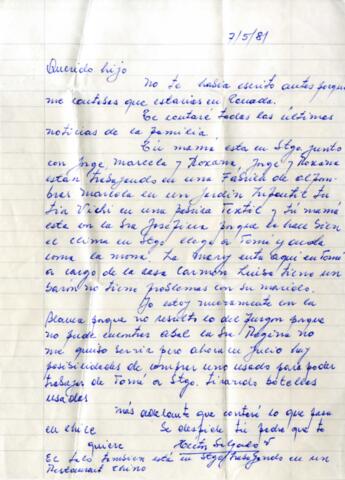 7/5/81
Querido hijo
No te había escrito antes porque
me contases que estarias en Canada.
Te contaré todas las últimas
noticias de la familia.
Tu mamá esta en Stgo. junto
con Jorge, marcela y Roxana, Jorge y Roxana
están trabajando en una Fabrica de alfom-
bras marcela en un Jardin Infantil tu
tia Vichi en una fabrica Textil y tu mamá
esta con la Sra Josefina porque le hace bien
el clima en Stgo. llega a Tomé y anda
como la mona. La mery esta aqui en Tomé
a cargo de la casa Carmen Luisa tiene un
baron no tiene problemas con su marido.
Yo estoy nuevamente con la
blanca porque no resulto lo del furgon porque
no pude encontrar aval la Sra Regina no
me quiso servir pero ahora en Julio hay
posibilidades de comprar uno usado para poder
trabajar de Tomé a Stgo. tirando botellas
usadas
más adelante que contaré lo que pasa
en chile Se despide tu padre que te
quiere Hector Salgado
El Lilo tambien está en Stgo trabajando en un
Restaurant chino